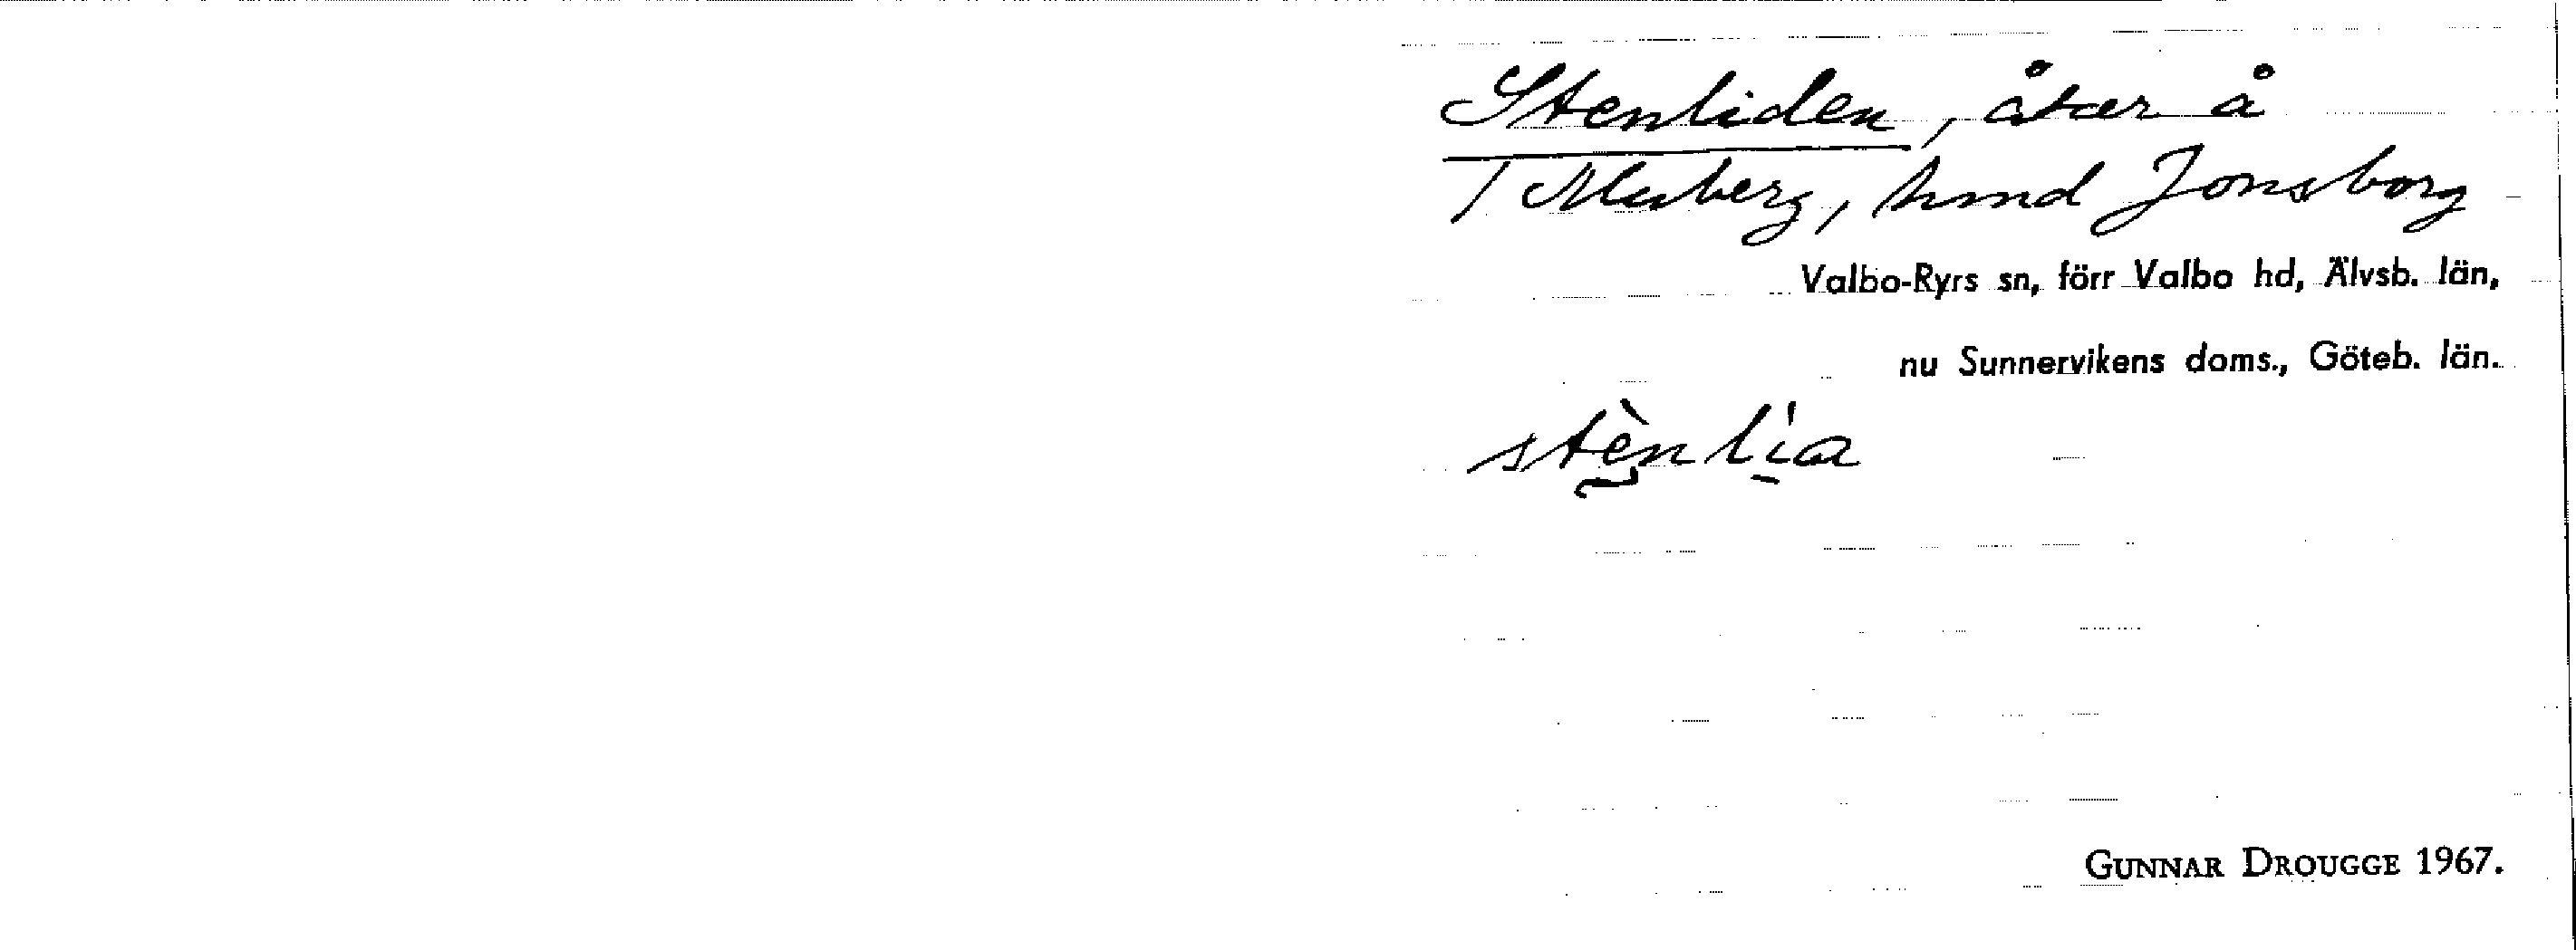 Stenliden, åker å
Muberg, hmd Jonsborg
Valbo-Ryrs sn, förr Valbo hd, Älvsb. län,
nu Sunnervikens doms., Göteb. län.
stènlía
GUNNAR DROUGGE 1967.